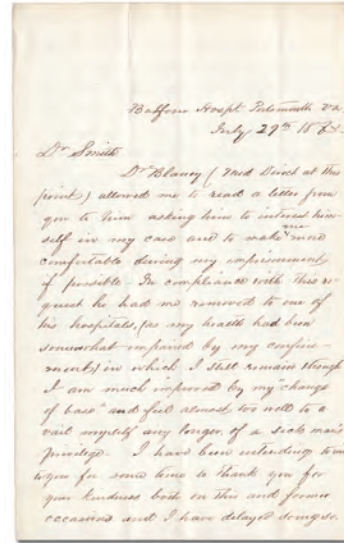 Balfour Hospt Portsmouth Va.
July 29th 186
Dr Smith
Dr Blaney (Med Direct at this
point) allowed me to read a letter from
you to him asking him to interest him-
self in my case and to make me more
comfortable during my imprisonment
if possible - In compliance with this re-
quest he had me removed to one of
his hospitals, (as my health had been
somewhat impaired by my confine-
ment) in which I still remain though
I am much improved by my "change
of base" and feel almost too well to a
vail myself any longer, of a sick man's
privilege. I have been intending to
to you for some time to thank you for
your kindness both on this and former
occasions and I have delayed doing so